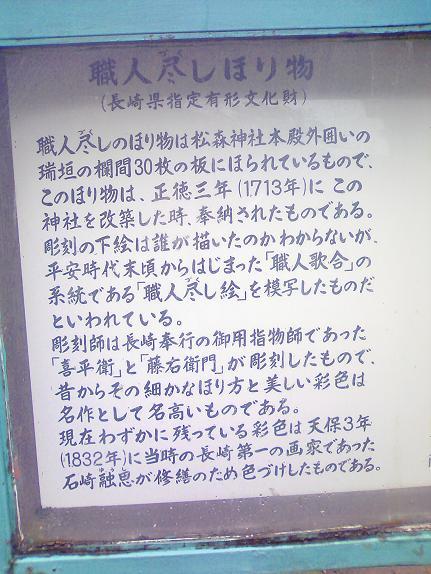 職人尽しほり物
(長崎県指定有形文化財)
職人尽しのほり物は松森神社本殿外囲いの
瑞垣の欄間30枚の板にほられているもので、
このほり物は、正徳三年(1713年)に この
神社を改築した時、奉納されたものである。
彫刻の下絵は誰が描いたのかわからないが、
平安時代末頃からはじまった「職人歌合」の
系統である「職人尽し絵」を模写したものだ
といわれている。
彫刻師は長崎奉行の御用指物師であった
「喜平衛」と「藤右衛門」が彫刻したもので、
昔からその細かなほり方と美しい彩色は
名作として名高いものである。
現在わずかに残っている彩色は天保3年
(1832年)に当時の長崎第一の画家であった
石崎融思が修繕のため色づけしたものである。